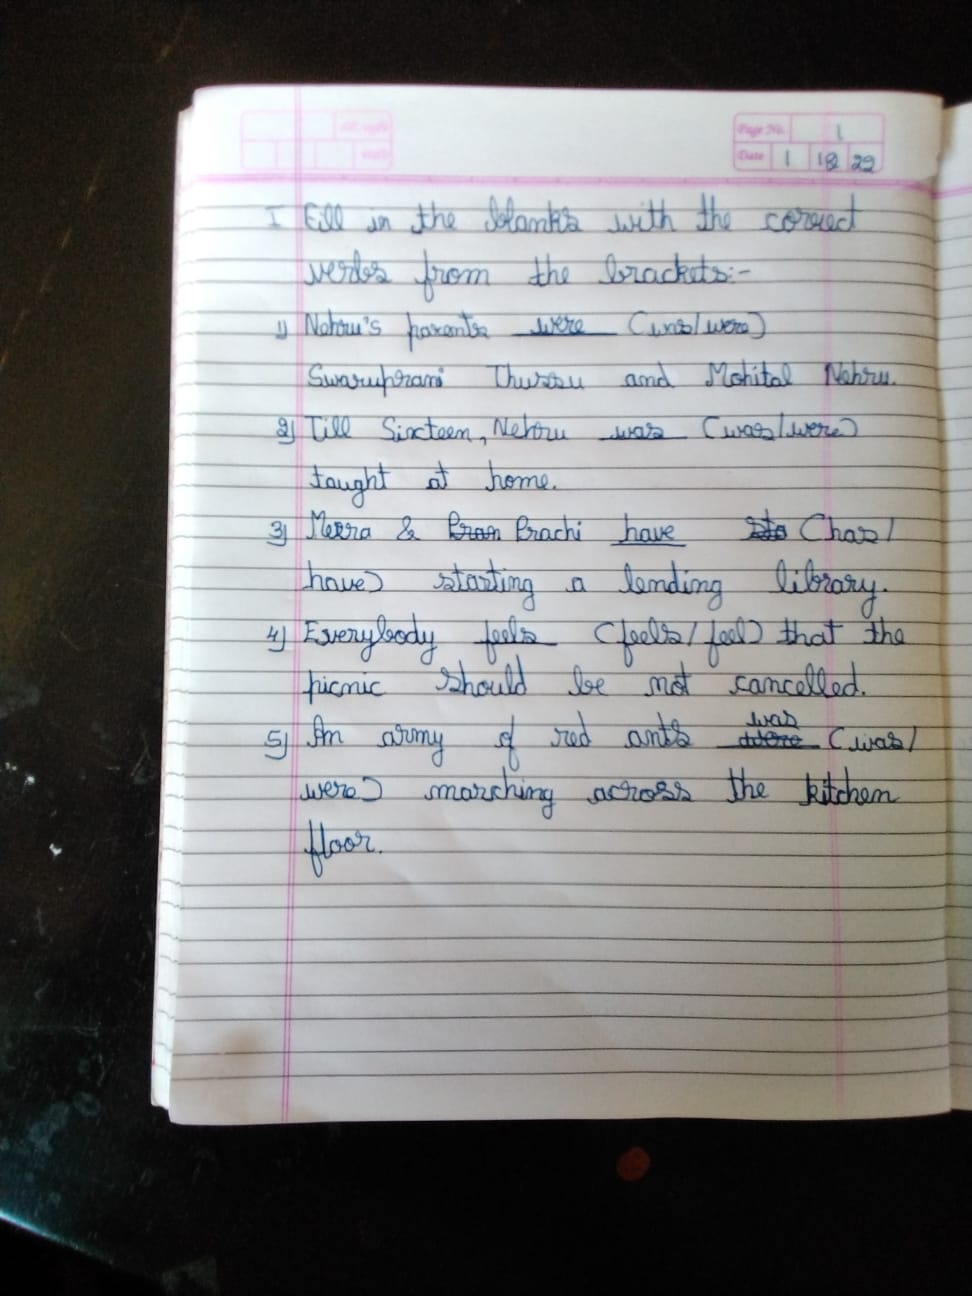 Page No. 1
Date 1 12 22
I Fill in the blanks with the correct
verbs from the brackets:-
1) Nehru's parents were (was/were)
Swaruprani Thussu and Mohital Nehru.
2) Till Sixteen, Nehru was (was/were)
taught at home.
3) Meera & Pran Prachi have sta (has/
have) starting a lending library.
4) Everybody feels (feels/feel) that the
picnic should be not cancelled.
5) An army of red ants was were (was/
were) marching across the kitchen
floor.